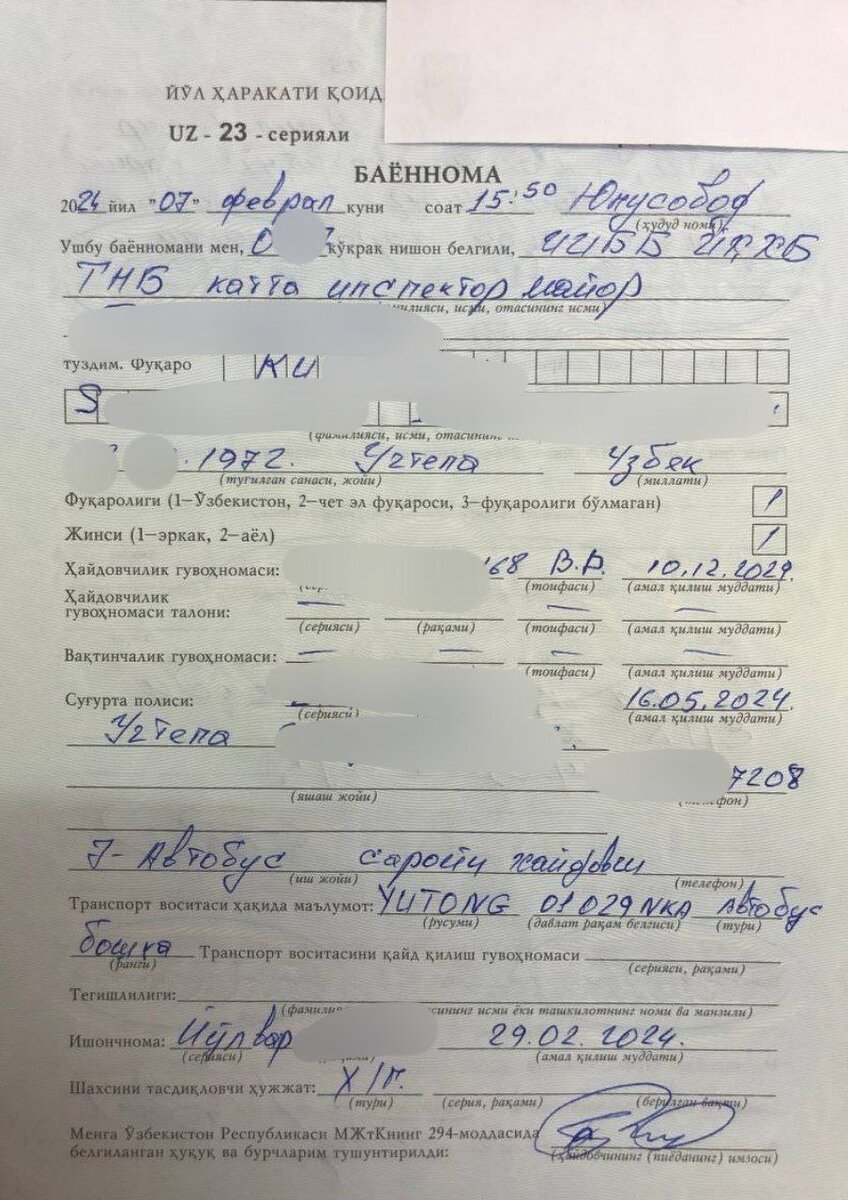 ЙЎЛ ҲАРАКАТИ ҚОИД
UZ - 23 - серияли
БАЁННОМА
2024 йил "07" феврал куни соат 15:50 Юнусобод
(ҳудуд номи)
Ушбу баённомани мен, 0 кўкрак нишон белгили, ИИББ ЙҲХБ
ТНБ катта инспектор майор
илияси, исми, отасининг исми)
туздим. Фуқаро КИ
S
(фамилияси, исми, отасининг
.1972. Учтепа Узбек
(туғилган санаси, жойи) (миллати)
Фуқаролиги (1–Ўзбекистон, 2–чет эл фуқароси, 3–фуқаролиги бўлмаган) 1
Жинси (1–эркак, 2–аёл) 1
Ҳайдовчилик гувоҳномаси: 68 B.D. 10.12.2029.
(тоифаси) (амал қилиш муддати)
Ҳайдовчилик
гувоҳномаси талони: — — —
(серияси) (рақами) (тоифаси) (амал қилиш муддати)
Вақтинчалик гувоҳномаси: — — — —
(тоифаси) (амал қилиш муддати)
Суғурта полиси: 16.05.2024.
(серияси) (амал қилиш муддати)
Учтепа
7208
(яшаш жойи) фон)
7-Автобус саройи хайдовчи
(иш жойи) (телефон)
Транспорт воситаси ҳақида маълумот: YUTONG 01 029 NKA Автобус
(русуми) (давлат рақам белгиси) (тури)
бошқа Транспорт воситасини қайд қилиш гувоҳномаси
(ранги) (серияси, рақами)
Тегишлилиги:
(фамили сининг исми ёки ташкилотнинг номи ва манзили)
Ишончнома: Йўл вар 29.02.2024.
(серияси) (амал қилиш муддати)
Шахсини тасдиқловчи ҳужжат: Х/г.
(тури) (серия, рақами) (берилган вақти)
Менга Ўзбекистон Республикаси МЖтКнинг 294-моддасида
белгиланган ҳуқуқ ва бурчларим тушунтирилди:
(ҳайдовчининг (пиёданинг) имзоси)